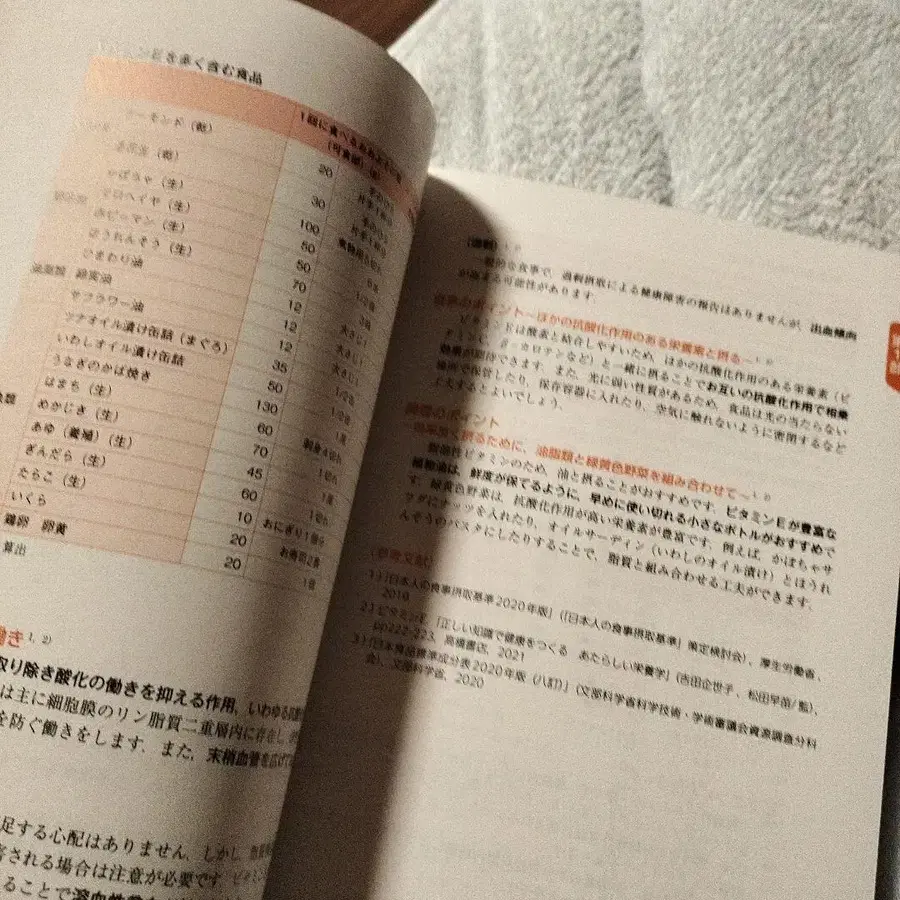 ンEを多く含む食品
1回に食べるおおよその量
(可食部)(g)
アーモンド(乾)
20
落花生(乾)
30
かぼちゃ(生)
100
モロヘイヤ(生)
50
赤ピーマン(生)
50
ほうれんそう(生)
70
ひまわり油
12
大さじ1
油脂類 綿実油
12
大さじ1
サフラワー油
12
大さじ1
ツナオイル漬け缶詰(まぐろ)
35
1/2缶
いわしオイル漬け缶詰
50
1/2缶
うなぎのかば焼き
130
はまち(生)
60
刺身4切れ
めかじき(生)
70
1切れ
あゆ(養殖)(生)
45
1尾
ぎんだら(生)
60
1切れ
たらこ(生)
10
おにぎり1個分
いくら
20
お寿司2貫
鶏卵 卵黄
20
1個
算出
働き1, 2)
取り除き酸化の働きを抑える作用、いわゆる抗酸
は主に細胞膜のリン脂質二重層内に存在し
を防ぐ働きをします。また、末梢血管を広げ
足する心配はありません。しかし、
害される場合は注意が必要です。
ることで溶血性
(過剰)1, 2)
一般的な食事で、過剰摂取による健康障害の報告はありませんが、出血傾向
が高まる可能性があります。
食事のポイント~ほかの抗酸化作用のある栄養素と摂る~1, 2)
ビタミンEは酸素と結合しやすいため、ほかの抗酸化作用のある栄養素(ビ
タミンC、β-カロテンなど)と一緒に摂ることでお互いの抗酸化作用で相乗
効果が期待できます。また、光に弱い性質があるため、食品は光の当たらない
場所で保管したり、保存容器に入れたり、空気に触れないように密閉するなど
工夫するとよいでしょう。
調理のポイント
~効率良く摂るために、油脂類と緑黄色野菜を組み合わせて~1, 2)
脂溶性ビタミンのため、油と摂ることがおすすめです。ビタミンEが豊富な
植物油は、鮮度が保てるように、早めに使い切れる小さなボトルがおすすめで
す。緑黄色野菜は、抗酸化作用が高い栄養素が豊富です。例えば、かぼちゃサ
ラダにナッツを入れたり、オイルサーディン(いわしのオイル漬け)とほうれ
んそうのパスタにしたりすることで、脂質と組み合わせる工夫ができます。
(参考文献)
1)「日本人の食事摂取基準2020年版」(「日本人の食事摂取基準」策定検討会)、厚生労働省、
2019
2)ビタミンE、「正しい知識で健康をつくる あたらしい栄養学」(吉田企世子、松田早苗/監)、
pp222-223、高橋書店、2021
3)「日本食品標準成分表2020年版(八訂)」(文部科学省科学技術・学術審議会資源調査分科
会)、文部科学省、2020